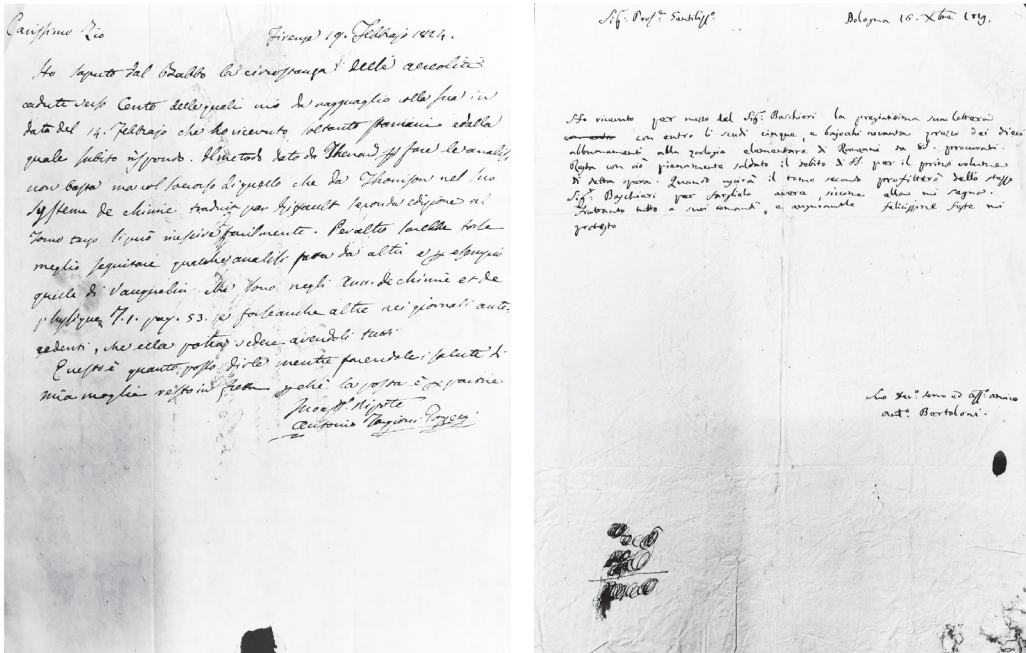 Carissimo Zio
Firenze 19. Febbrajo 1824.
Ho saputo dal Babbo la circostanza delle aereoliti
cadute verso Cento delle quali mi da ragguaglio colla sua in
data del 14. Febbrajo che ho ricevuto soltanto stamani e dalla
quale subito rispondo. Il metodo dato da Thenard p fare le analisi
non basta ma col soccorso di quello che da Thomson nel suo
Systeme de chimie traduit par Riffault seconda edizione al
tomo terzo, si può riuscire facilmente. Peraltro sarebbe forse
meglio seguitare qualche analisi fatta da altri e p esempio
quelle di Vauquelin che sono negli Ann. de chimie et de
physique T.1. pag. 53. e forse anche altre nei giornali ante-
cedenti, che ella potrà vedere avendoli tutti.
Questo è quanto posso dirle mentre facendole i saluti di
mia moglie resto in fretta perchè la posta è p partire
Suo aff.º Nipote
Antonio Targioni Tozzetti
Sig.r Prof.r Gentiliss.º
Bologna 16. Xbre 1819.
Ho ricevuto per mezzo del Sig.r Baschieri la pregiatissima sua lettera
con entro li scudi cinque, e bajochi novanta prezzo dei dieci
abbuonamenti alla zoologia elementare di Ranzani da Ed. procurati.
Resta con ciò pienamente saldato il debito di per il primo volume
di detta opera. Quando uscirà il tomo secondo profitterò dello stesso
Sig.r Baschieri per
Frattanto tutto a suoi comandi, e felicissime feste mi
protesto
Suo dev.º servo ed aff.º amico
Ant.º Bertoloni.